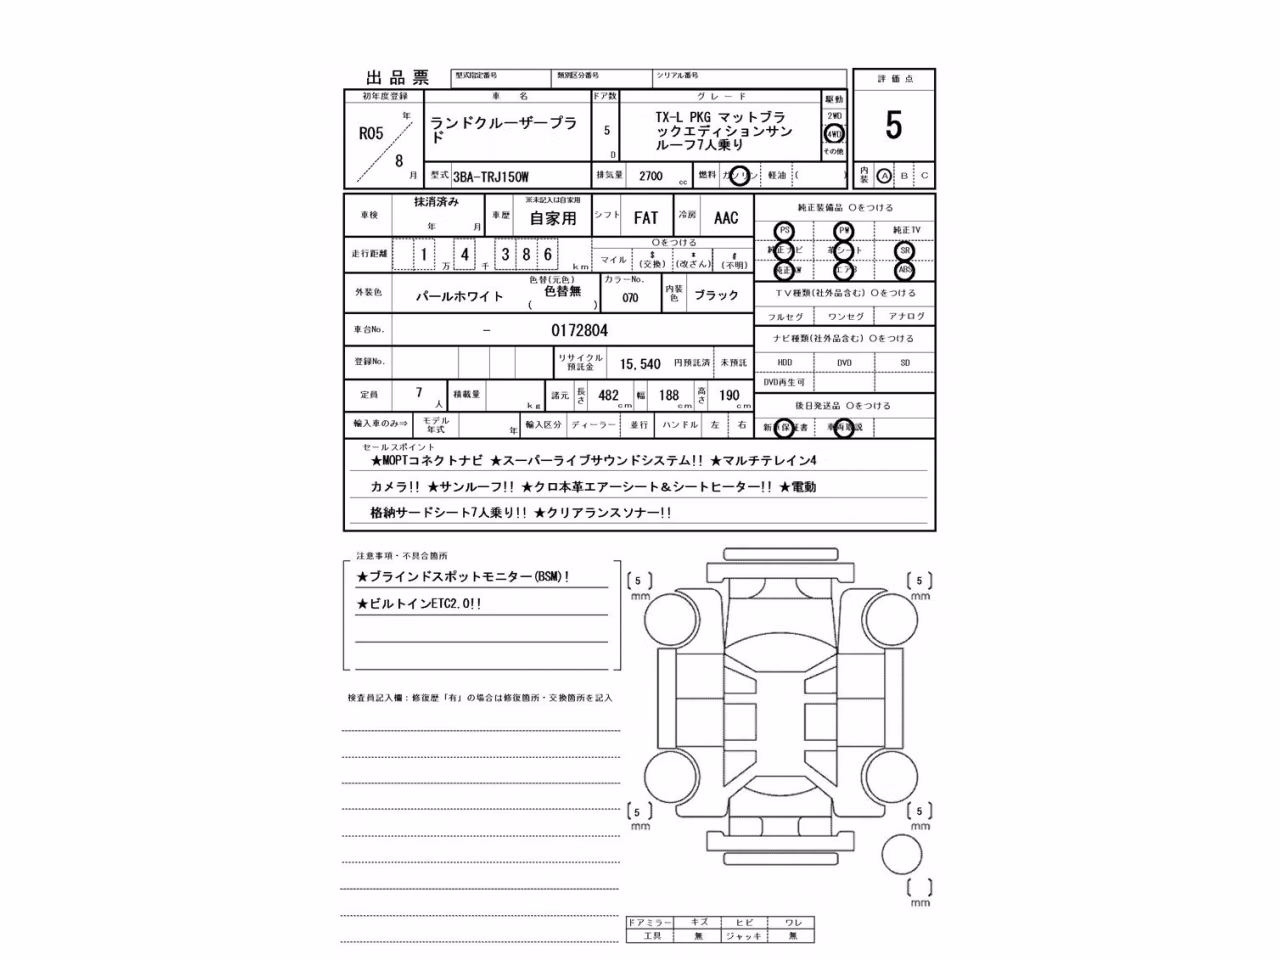 出品票
型式指定番号 類別区分番号 シリアル番号
評価点
初年度登録 車名 ドア数 グレード 駆動
R05 年 8 月
ランドクルーザープラ
ド
5 D
TX-L PKG マットブラ
ックエディションサン
ルーフ7人乗り
2WD
4WD
その他
5
型式 3BA-TRJ150W 排気量 2700 cc 燃料 ガソリン 軽油 ( )
内装 A B C
車検 抹消済み 年 月 車歴 ※未記入は自家用 自家用 シフト FAT 冷房 AAC
純正装備品 〇をつける
PS PW 純正TV
純正ナビ 革シート SR
純正AW エアB ABS
走行距離 1 万 4 千 3 8 6 km
〇をつける
マイル $ (交換) * (改ざん) # (不明)
外装色 パールホワイト 色替(元色) 色替無 ( ) カラーNo. 070 内装色 ブラック
TV種類(社外品含む) 〇をつける
フルセグ ワンセグ アナログ
車台No. - 0172804
ナビ種類(社外品含む) 〇をつける
HDD DVD SD
DVD再生可
登録No. リサイクル預託金 15,540 円預託済 未預託
定員 7 人 積載量 kg 諸元 長さ 482 cm 幅 188 cm 高さ 190 cm
後日発送品 〇をつける
新車保証書 車両取説
輸入車のみ⇒ モデル年式 年 輸入区分 ディーラー 並行 ハンドル 左 右
セールスポイント
★MOPTコネクトナビ ★スーパーライブサウンドシステム!! ★マルチテレイン4
カメラ!! ★サンルーフ!! ★クロ本革エアーシート&シートヒーター!! ★電動
格納サードシート7人乗り!! ★クリアランスソナー!!
注意事項・不具合箇所
★ブラインドスポットモニター(BSM)!
★ビルトインETC2.0!!
検査員記入欄:修復歴「有」の場合は修復箇所・交換箇所を記入
[5] mm
[5] mm
[5] mm
[5] mm
[ ] mm
ドアミラー キズ ヒビ ワレ
工具 無 ジャッキ 無